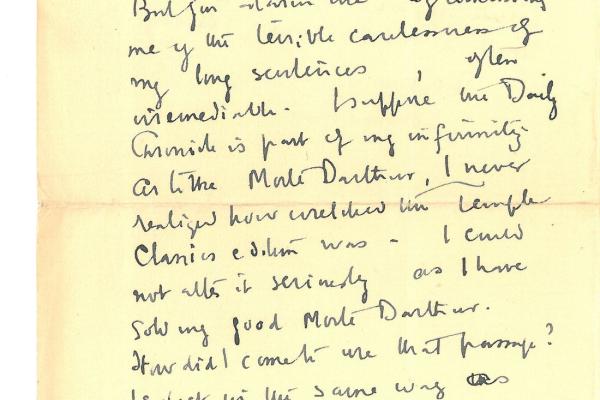 me of the terrible carelessness of
my long sentences, often
irremediable. I suppose the Daily
Chronicle is part of my infirmity.
As to the Morte Darthur, I never
realized how wretched the Temple
Classics edition was - I could
not alter it seriously as I have
sold my good Morte Darthur.
How did I come to use that passage?
in the same way as